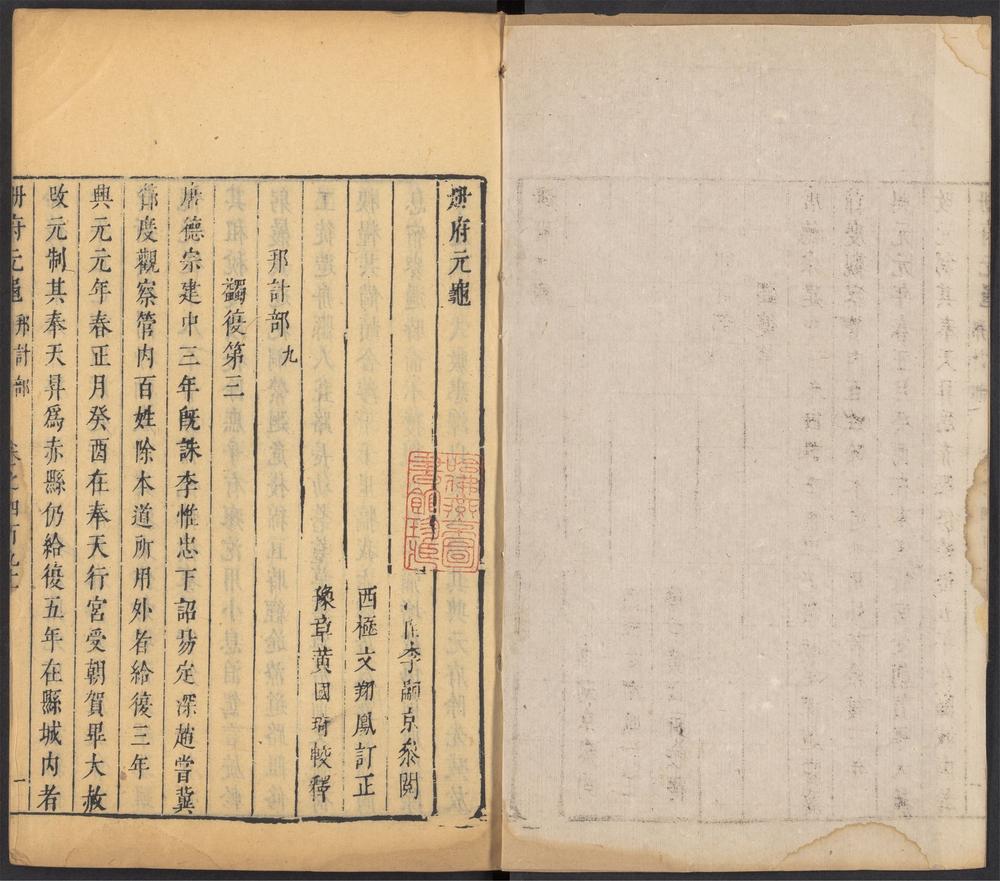 冊府元龜
李嗣京叅閱
西極文翔鳳訂正
豫章黃國琦較釋
邦計部 九
蠲復第三
唐德宗建中三年旣誅李惟岳下詔易定深趙嘗冀
節度觀察管內百姓除本道所用外者給復三年
興元元年春正月癸酉在奉天行宮受朝賀畢大赦
改元制其奉天昇爲赤縣仍給復五年在縣城內者
冊府元龜 邦計部 卷之四百九十 一
哈佛燕京圖書館珍藏